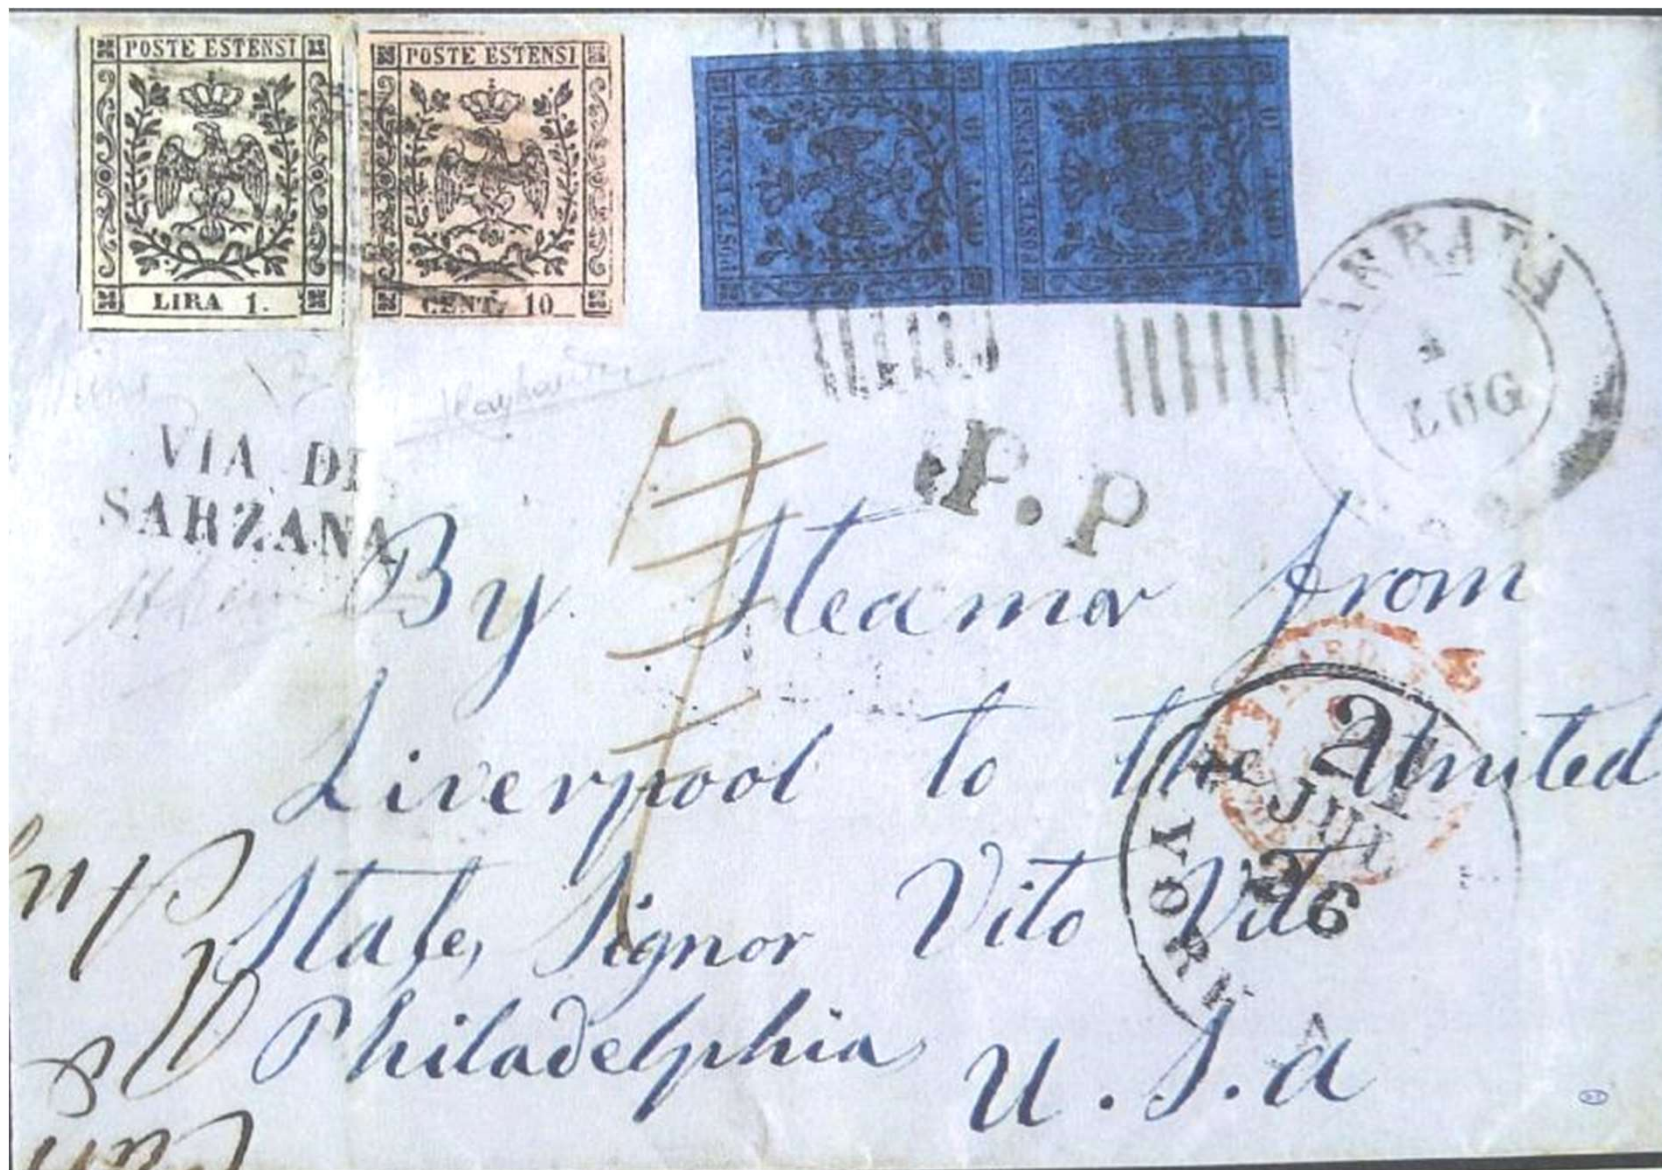 POSTE ESTENSI
LIRA 1.
POSTE ESTENSI
CENT. 10
POSTE ESTENSI
POSTE ESTENSI
LUG
VIA DI
SARZANA
P.P
By Steamer from
Liverpool to the United
State, Signor Vito Viti
Philadelphia
U.S.A
21
YORK